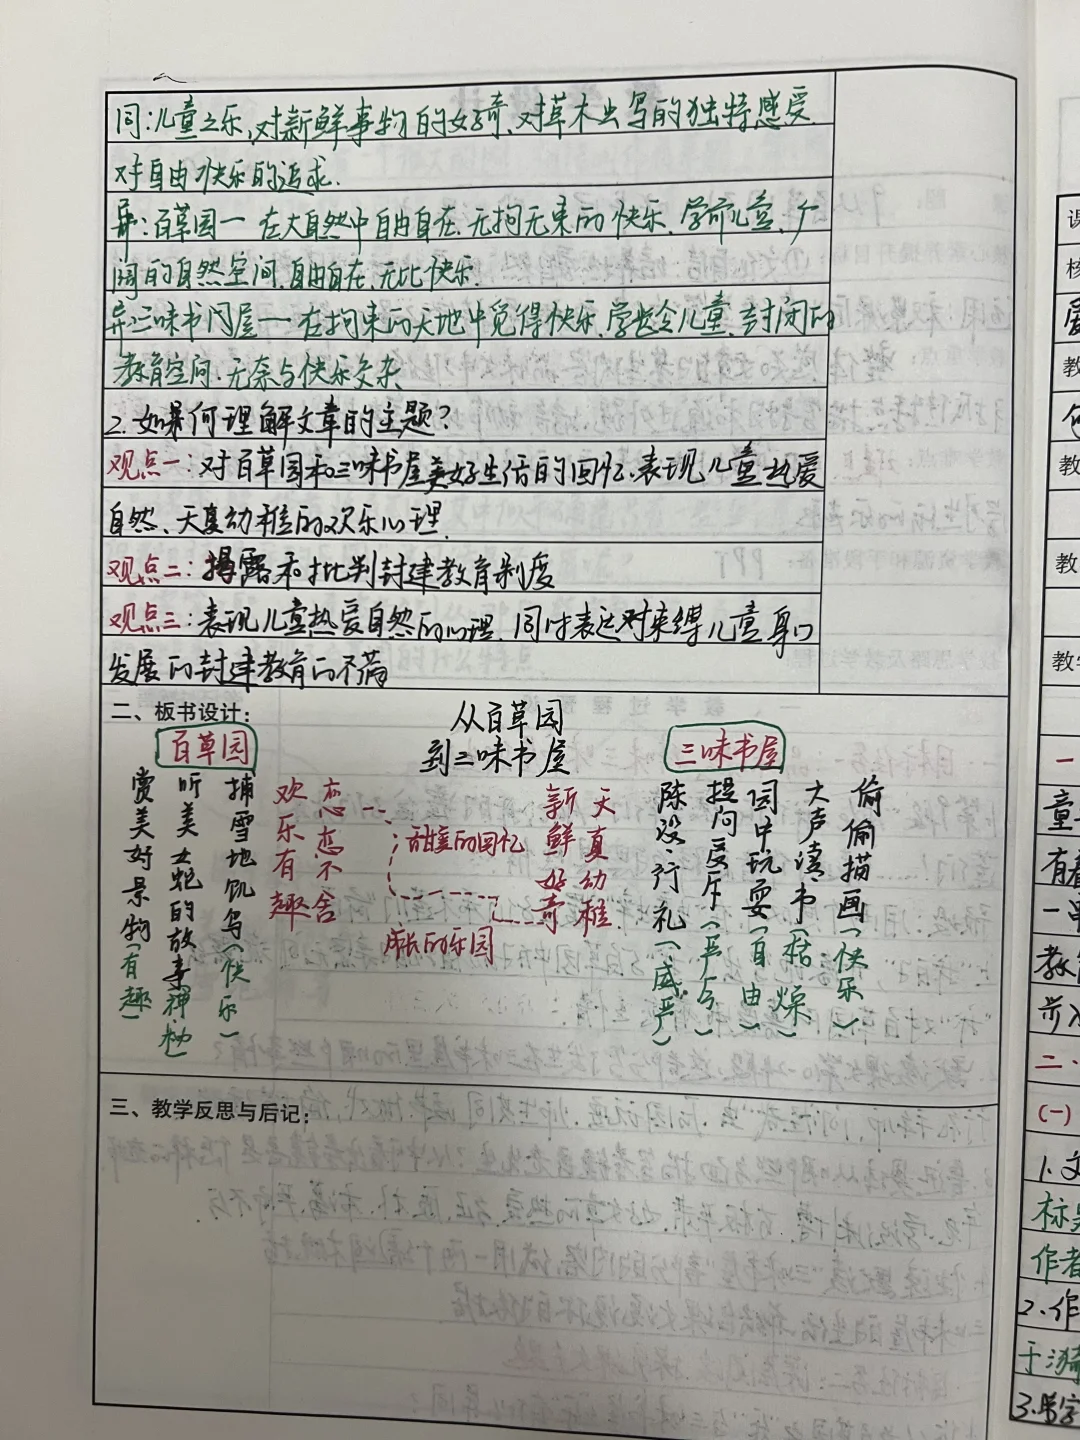 同:儿童之乐,对新鲜事物的好奇、对草木虫鸟的独特感受
对自由快乐的追求.
异:百草园一 在大自然中自由自在、无拘无束的快乐、学前儿童、广
阔的自然空间、自由自在、无比快乐.
异:三味书屋一 在拘束的天地中觅得快乐、学龄儿童、封闭的
教育空间、无奈与快乐交杂
2.如何理解文章的主题?
观点一:对百草园和三味书屋美好生活的回忆、表现儿童热爱
自然、天真幼稚的欢乐心理.
观点二:揭露和批判封建教育制度
观点三:表现儿童热爱自然的心理,同时表达对束缚儿童身心
发展的封建教育的不满
二、板书设计:
从百草园
到三味书屋
百草园
赏美好景物(有趣)
听美女蛇的故事(神秘)
捕雪地饥鸟(快乐)
欢乐有趣
恋恋不舍
甜蜜的回忆
成长的乐园
新鲜好奇
天真幼稚
三味书屋
陈设行礼(威严)
提问受斥(严厉)
园中玩耍(自由)
大声读书(枯燥)
偷偷描画(快乐)
三、教学反思与后记:
课
核
教
教
教学
一
童
有着
教
步入
二、
(一)
1.文
标
作者
2.作
于
3.